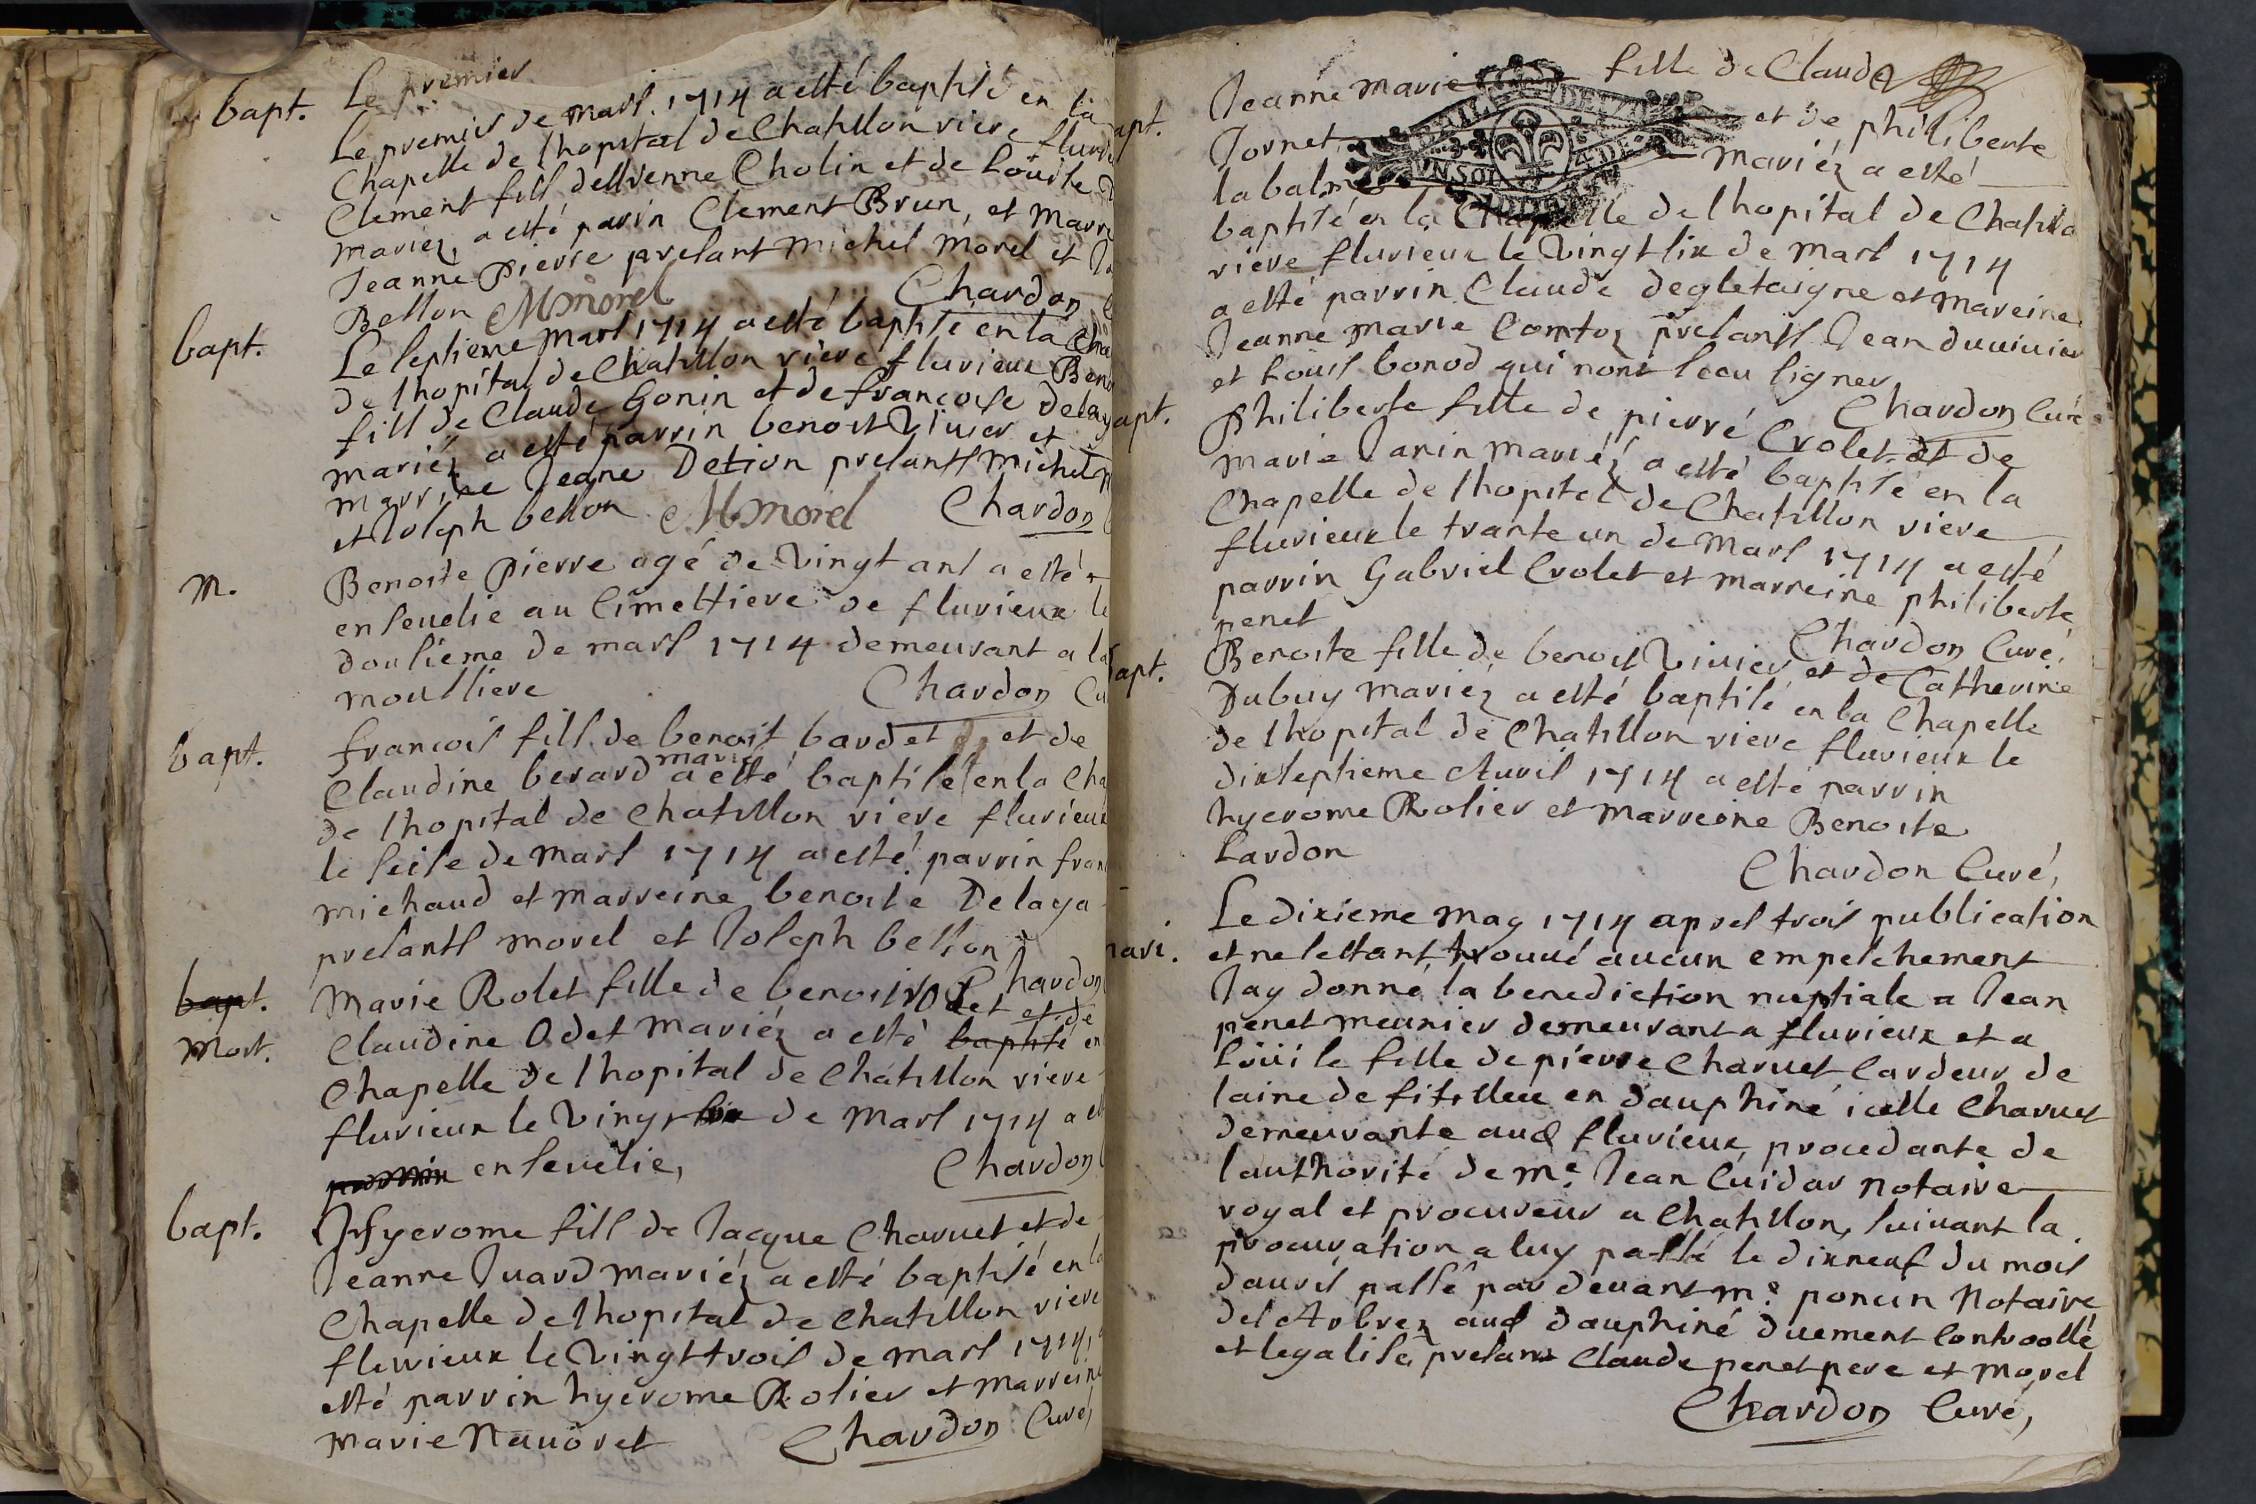 Le premier
bapt. Le premier de mars 1714 a esté baptisé en la
Chapelle de lhopital de Chatillon viere fluvieux
Clement fils destienne Cholin et de Louise
mariez, a esté parin Clement Brun, et marr
Jeanne Pierre presant michel morel et
Bellon MMorel Chardon
bapt. Le septieme mars 1714 a esté baptisé en la Cha
de lhopital de Chatillon viere fluvieux Beno
fils de Claude Gonin et de francoise Delay
mariéz a esté parrin benoist Vivier et
marrine Jeane Detion presants michel
et Joseph bellon MMorel Chardon
m. Benoite Pierre agé de vingt ans a esté
ensevelie au Cimettiere de fluvieux le
dousieme de mars 1714 demeurant a la
moussiere Chardon Cu
bapt. francois fils de benoit bardet et de
Claudine berard mariez a esté baptisé en la Cha
de lhopital de Chatillon viere fluvieux
le seise de mars 1714 a esté parrin fran
michaud et marreine benoite Delaya
presants morel et Joseph bellon
Chardon
bapt. Marie Rolet fille de benoist rolet et de
Mort. Claudine Odet mariéz a esté baptisé en
Chapelle de lhopital de Chatillon viere
fluvieux le vingt six de mars 1714 a est
parrin ensevelie, Chardon
bapt. Hyerome fils de Jacque Charvet et de
Jeanne Juard mariéz a esté baptisé en la
Chapelle de lhopital de Chatillon viere
fluvieux le vingt trois de mars 1714,
esté parrin hyerome Rolier et marreine
marie Nauoret Chardon Curé,
apt. Jeanne marie fille de Claude
Jornet et de philiberte
labalme mariéz a esté
baptisé en la Chapelle de lhopital de Chatillo
viere fluvieux le vingt six de mars 1714
a esté parrin Claude degletaigne et mareine
Jeanne marie Comtoz presants Jean duvivier
et Louis bonod qui nont sceu signer
Chardon Curé
apt. Philiberte fille de pierre Crolet et de
marie Janin mariéz a esté baptisé en la
Chapelle de lhopital de Chatillon viere
fluvieux le trante un de mars 1714 a esté
parrin Gabriel Crolet et marreine philiberte
penet Chardon Curé,
apt. Benoite fille de benois Vivier et de Catherine
Dubuy mariéz a esté baptisé en la Chapelle
de lhopital de Chatillon viere fluvieux le
dixseptieme Avril 1714 a esté parrin
hyerome Rolier et marreine Benoite
Lardon
Chardon Curé,
mari. Le dixieme may 1714 apres trois publication
et ne sestant trouvé aucun empeschement
Jay donné la benediction nuptiale a Jean
penet meunier demeurant a fluvieux et a
Louise fille de pierre Charvet Cardeur de
laine de fitillieu en dauphiné icelle Charvet
demeurante aud fluvieux, procedante de
lauthorité de me. Jean Cuidar notaire
royal et procureur a Chatillon, suivant la
procuration a luy passé le dixneuf du mois
davril passé par devant me. poncin Notaire
des Arbrez aud dauphiné duement Controollé
et legalisé, presant Claude penet pere et morel
Chardon Curé,